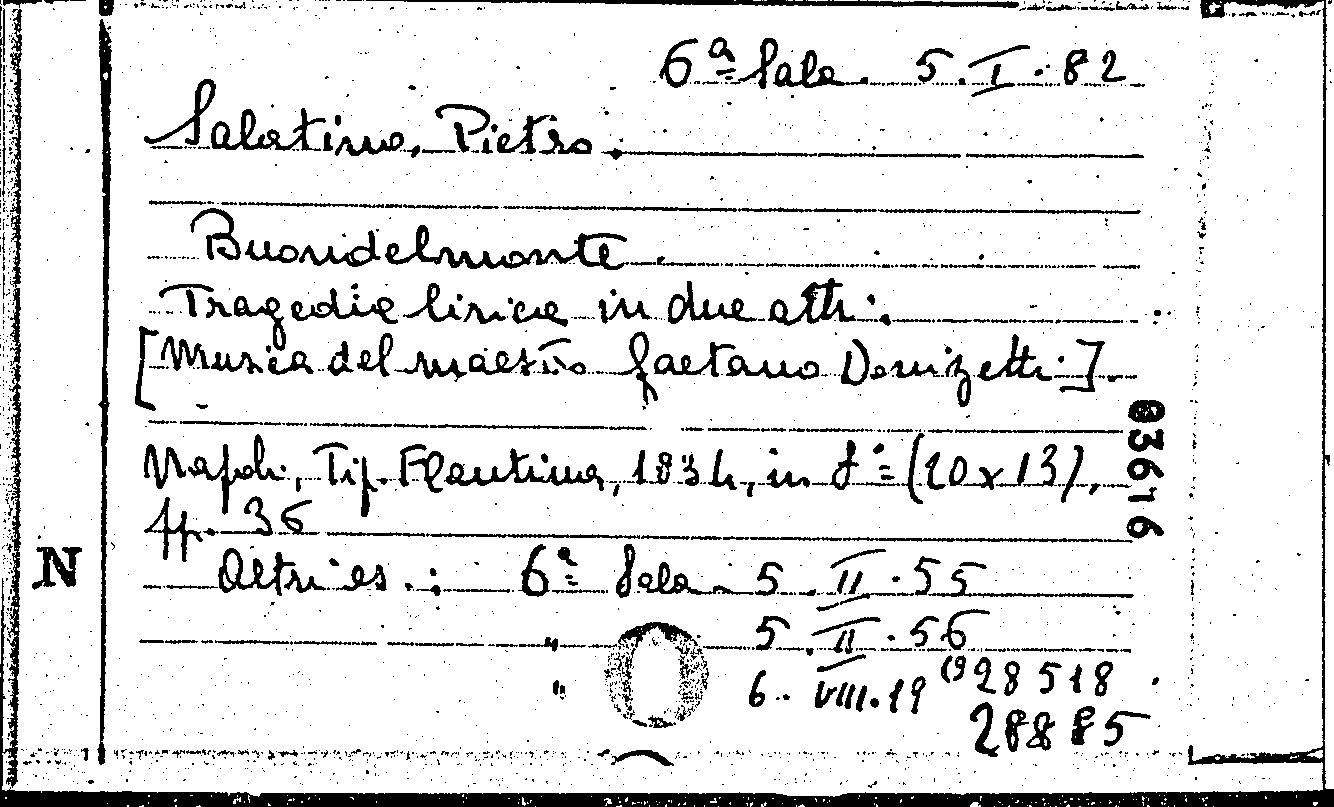 6ª Sala. 5.I.82
Salatino, Pietro.
Buondelmonte.
Tragedia lirica in due atti.
[Musica del maestro Gaetano Donizetti].
Napoli, Tip. Flautina, 1834, in 8º (20x13),
pp. 36
Altri es.: 6ª Sala. 5.II.55
" 5.II.56
" 6.VIII.19 (9 28518.
28885
83616
N